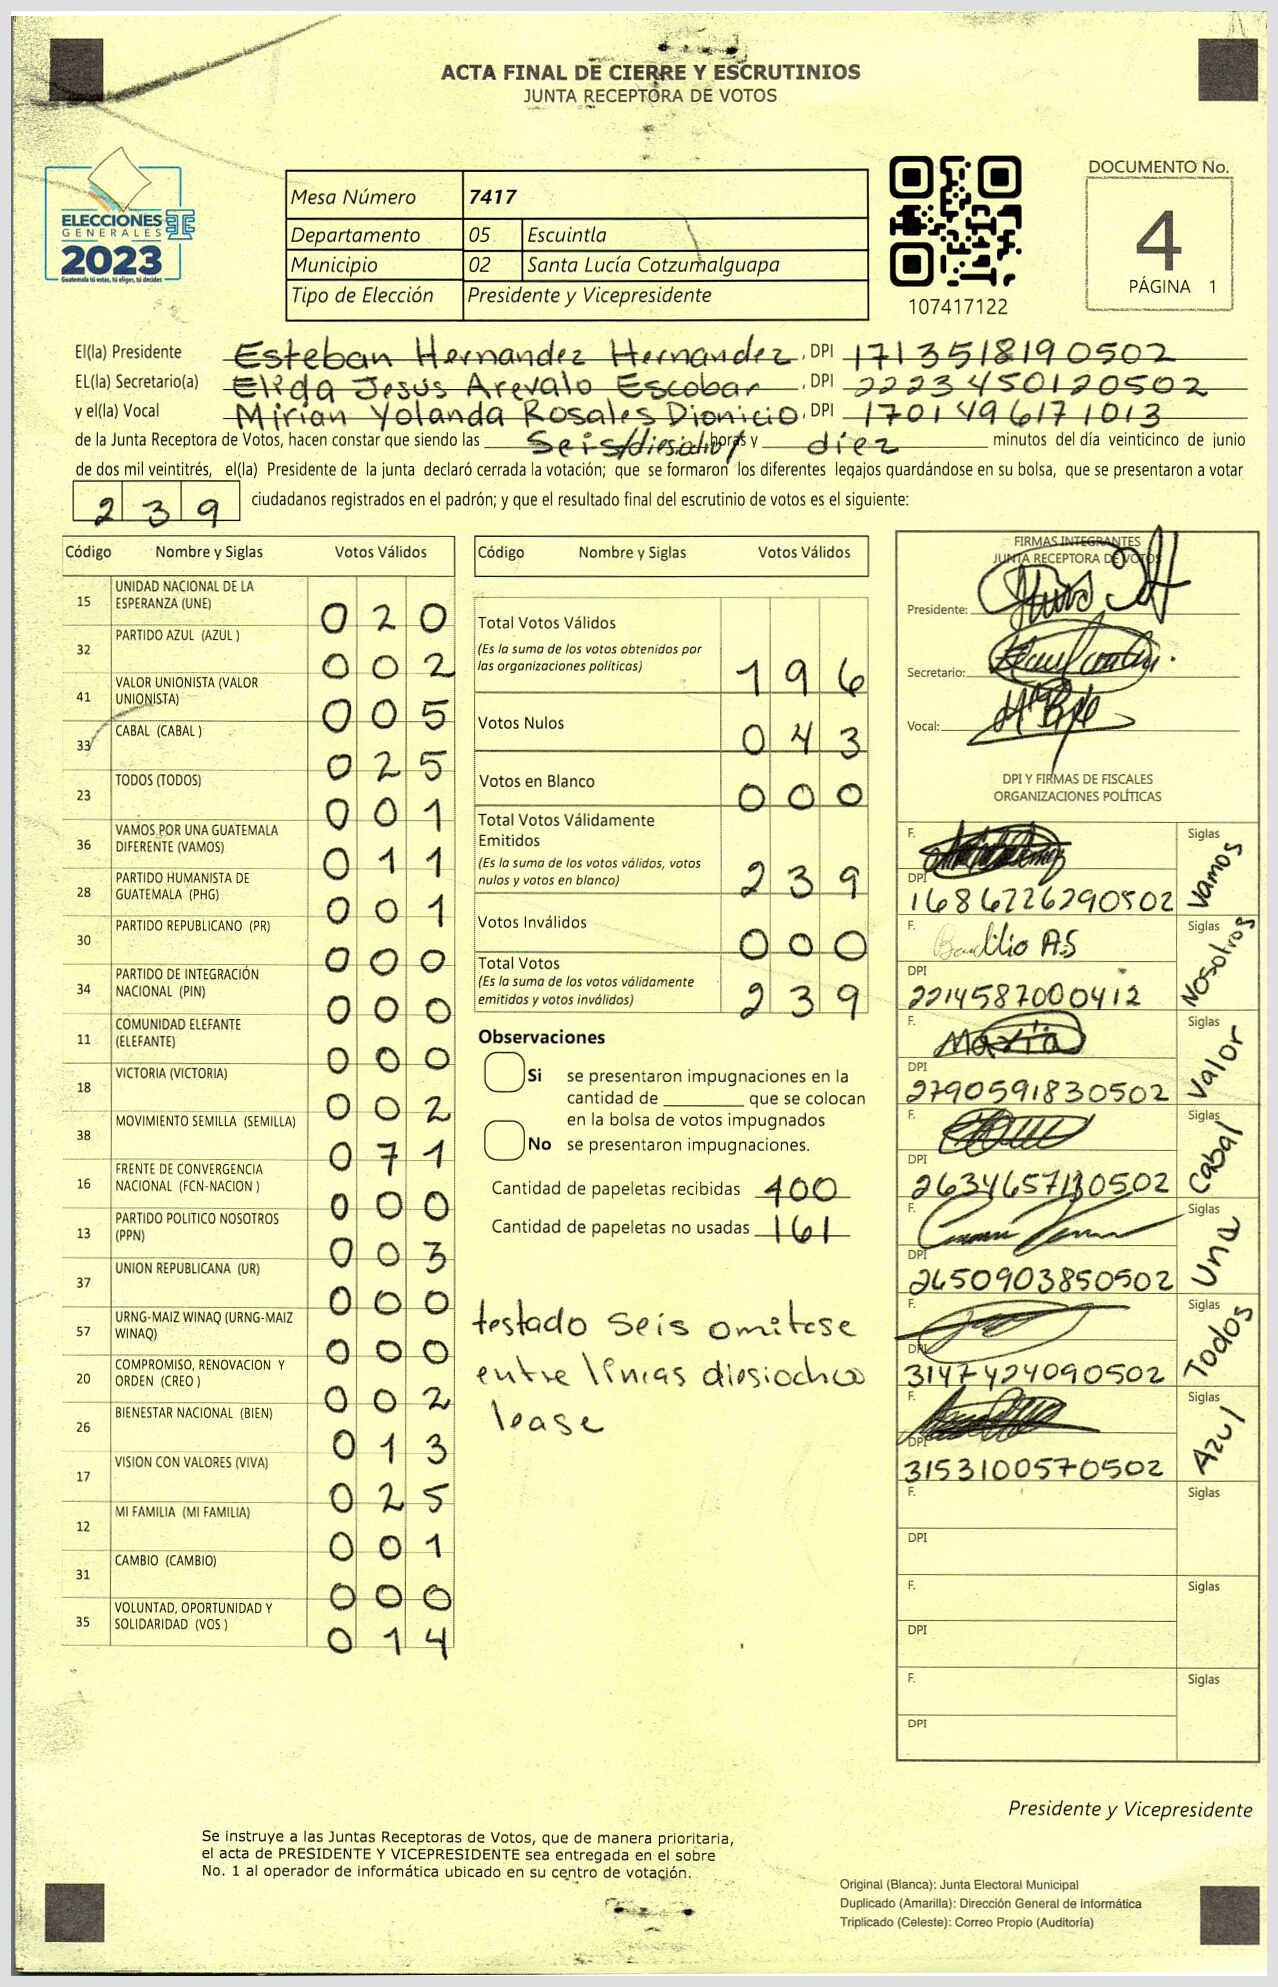 ACTA FINAL DE CIERRE Y ESCRUTINIOS
JUNTA RECEPTORA DE VOTOS
ELECCIONES
GENERALES
2023
Guatemala tú votas, tú eliges, tú decides
Mesa Número 7417
Departamento 05 Escuintla
Municipio 02 Santa Lucía Cotzumalguapa
Tipo de Elección Presidente y Vicepresidente
107417122
DOCUMENTO No.
4
PÁGINA 1
El(la) Presidente Esteban Hernandez Hernandez, DPI 1713518190502
EL(la) Secretario(a) Elida Jesus Arevalo Escobar, DPI 2223450120502
y el(la) Vocal Mirian Yolanda Rosales Dionicio, DPI 1701496171013
de la Junta Receptora de Votos, hacen constar que siendo las Seis/diesiocho/ horas y diez minutos del día veinticinco de junio
de dos mil veintitrés, el(la) Presidente de la junta declaró cerrada la votación; que se formaron los diferentes legajos quardándose en su bolsa, que se presentaron a votar
239 ciudadanos registrados en el padrón; y que el resultado final del escrutinio de votos es el siguiente:
Código Nombre y Siglas Votos Válidos
15 UNIDAD NACIONAL DE LA ESPERANZA (UNE) 020
32 PARTIDO AZUL (AZUL ) 002
41 VALOR UNIONISTA (VALOR UNIONISTA) 005
33 CABAL (CABAL ) 025
23 TODOS (TODOS) 001
36 VAMOS POR UNA GUATEMALA DIFERENTE (VAMOS) 011
28 PARTIDO HUMANISTA DE GUATEMALA (PHG) 001
30 PARTIDO REPUBLICANO (PR) 000
34 PARTIDO DE INTEGRACIÓN NACIONAL (PIN) 000
11 COMUNIDAD ELEFANTE (ELEFANTE) 000
18 VICTORIA (VICTORIA) 002
38 MOVIMIENTO SEMILLA (SEMILLA) 071
16 FRENTE DE CONVERGENCIA NACIONAL (FCN-NACION ) 000
13 PARTIDO POLITICO NOSOTROS (PPN) 003
37 UNION REPUBLICANA (UR) 000
57 URNG-MAIZ WINAQ (URNG-MAIZ WINAQ) 000
20 COMPROMISO, RENOVACION Y ORDEN (CREO ) 002
26 BIENESTAR NACIONAL (BIEN) 013
17 VISION CON VALORES (VIVA) 025
12 MI FAMILIA (MI FAMILIA) 001
31 CAMBIO (CAMBIO) 000
35 VOLUNTAD, OPORTUNIDAD Y SOLIDARIDAD (VOS ) 014
Código Nombre y Siglas Votos Válidos
Total Votos Válidos
(Es la suma de los votos obtenidos por las organizaciones políticas) 196
Votos Nulos 043
Votos en Blanco 000
Total Votos Válidamente Emitidos
(Es la suma de los votos válidos, votos nulos y votos en blanco) 239
Votos Inválidos 000
Total Votos
(Es la suma de los votos válidamente emitidos y votos inválidos) 239
Observaciones
Si se presentaron impugnaciones en la
cantidad de ________ que se colocan
en la bolsa de votos impugnados
No se presentaron impugnaciones.
Cantidad de papeletas recibidas 400
Cantidad de papeletas no usadas 161
testado Seis omitese
entre lineas diesiochco
lease
FIRMAS INTEGRANTES
JUNTA RECEPTORA DE VOTOS
Presidente:
Secretario:
Vocal:
DPI Y FIRMAS DE FISCALES
ORGANIZACIONES POLÍTICAS
F. Siglas Vamos
DPI 1686226290502
F. Basilio A.S Siglas Nosotros
DPI 2214587000412
F. Maria Siglas Valor
DPI 2790591830502
F. Siglas Cabal
DPI 2634657130502
F. Siglas Una
DPI 2650903850502
F. Siglas Todos
DPI 3147424090502
F. Siglas Azul
DPI 3153100570502
F. Siglas
DPI
F. Siglas
DPI
F. Siglas
DPI
Presidente y Vicepresidente
Se instruye a las Juntas Receptoras de Votos, que de manera prioritaria,
el acta de PRESIDENTE Y VICEPRESIDENTE sea entregada en el sobre
No. 1 al operador de informática ubicado en su centro de votación.
Original (Blanca): Junta Electoral Municipal
Duplicado (Amarilla): Dirección General de Informática
Triplicado (Celeste): Correo Propio (Auditoría)